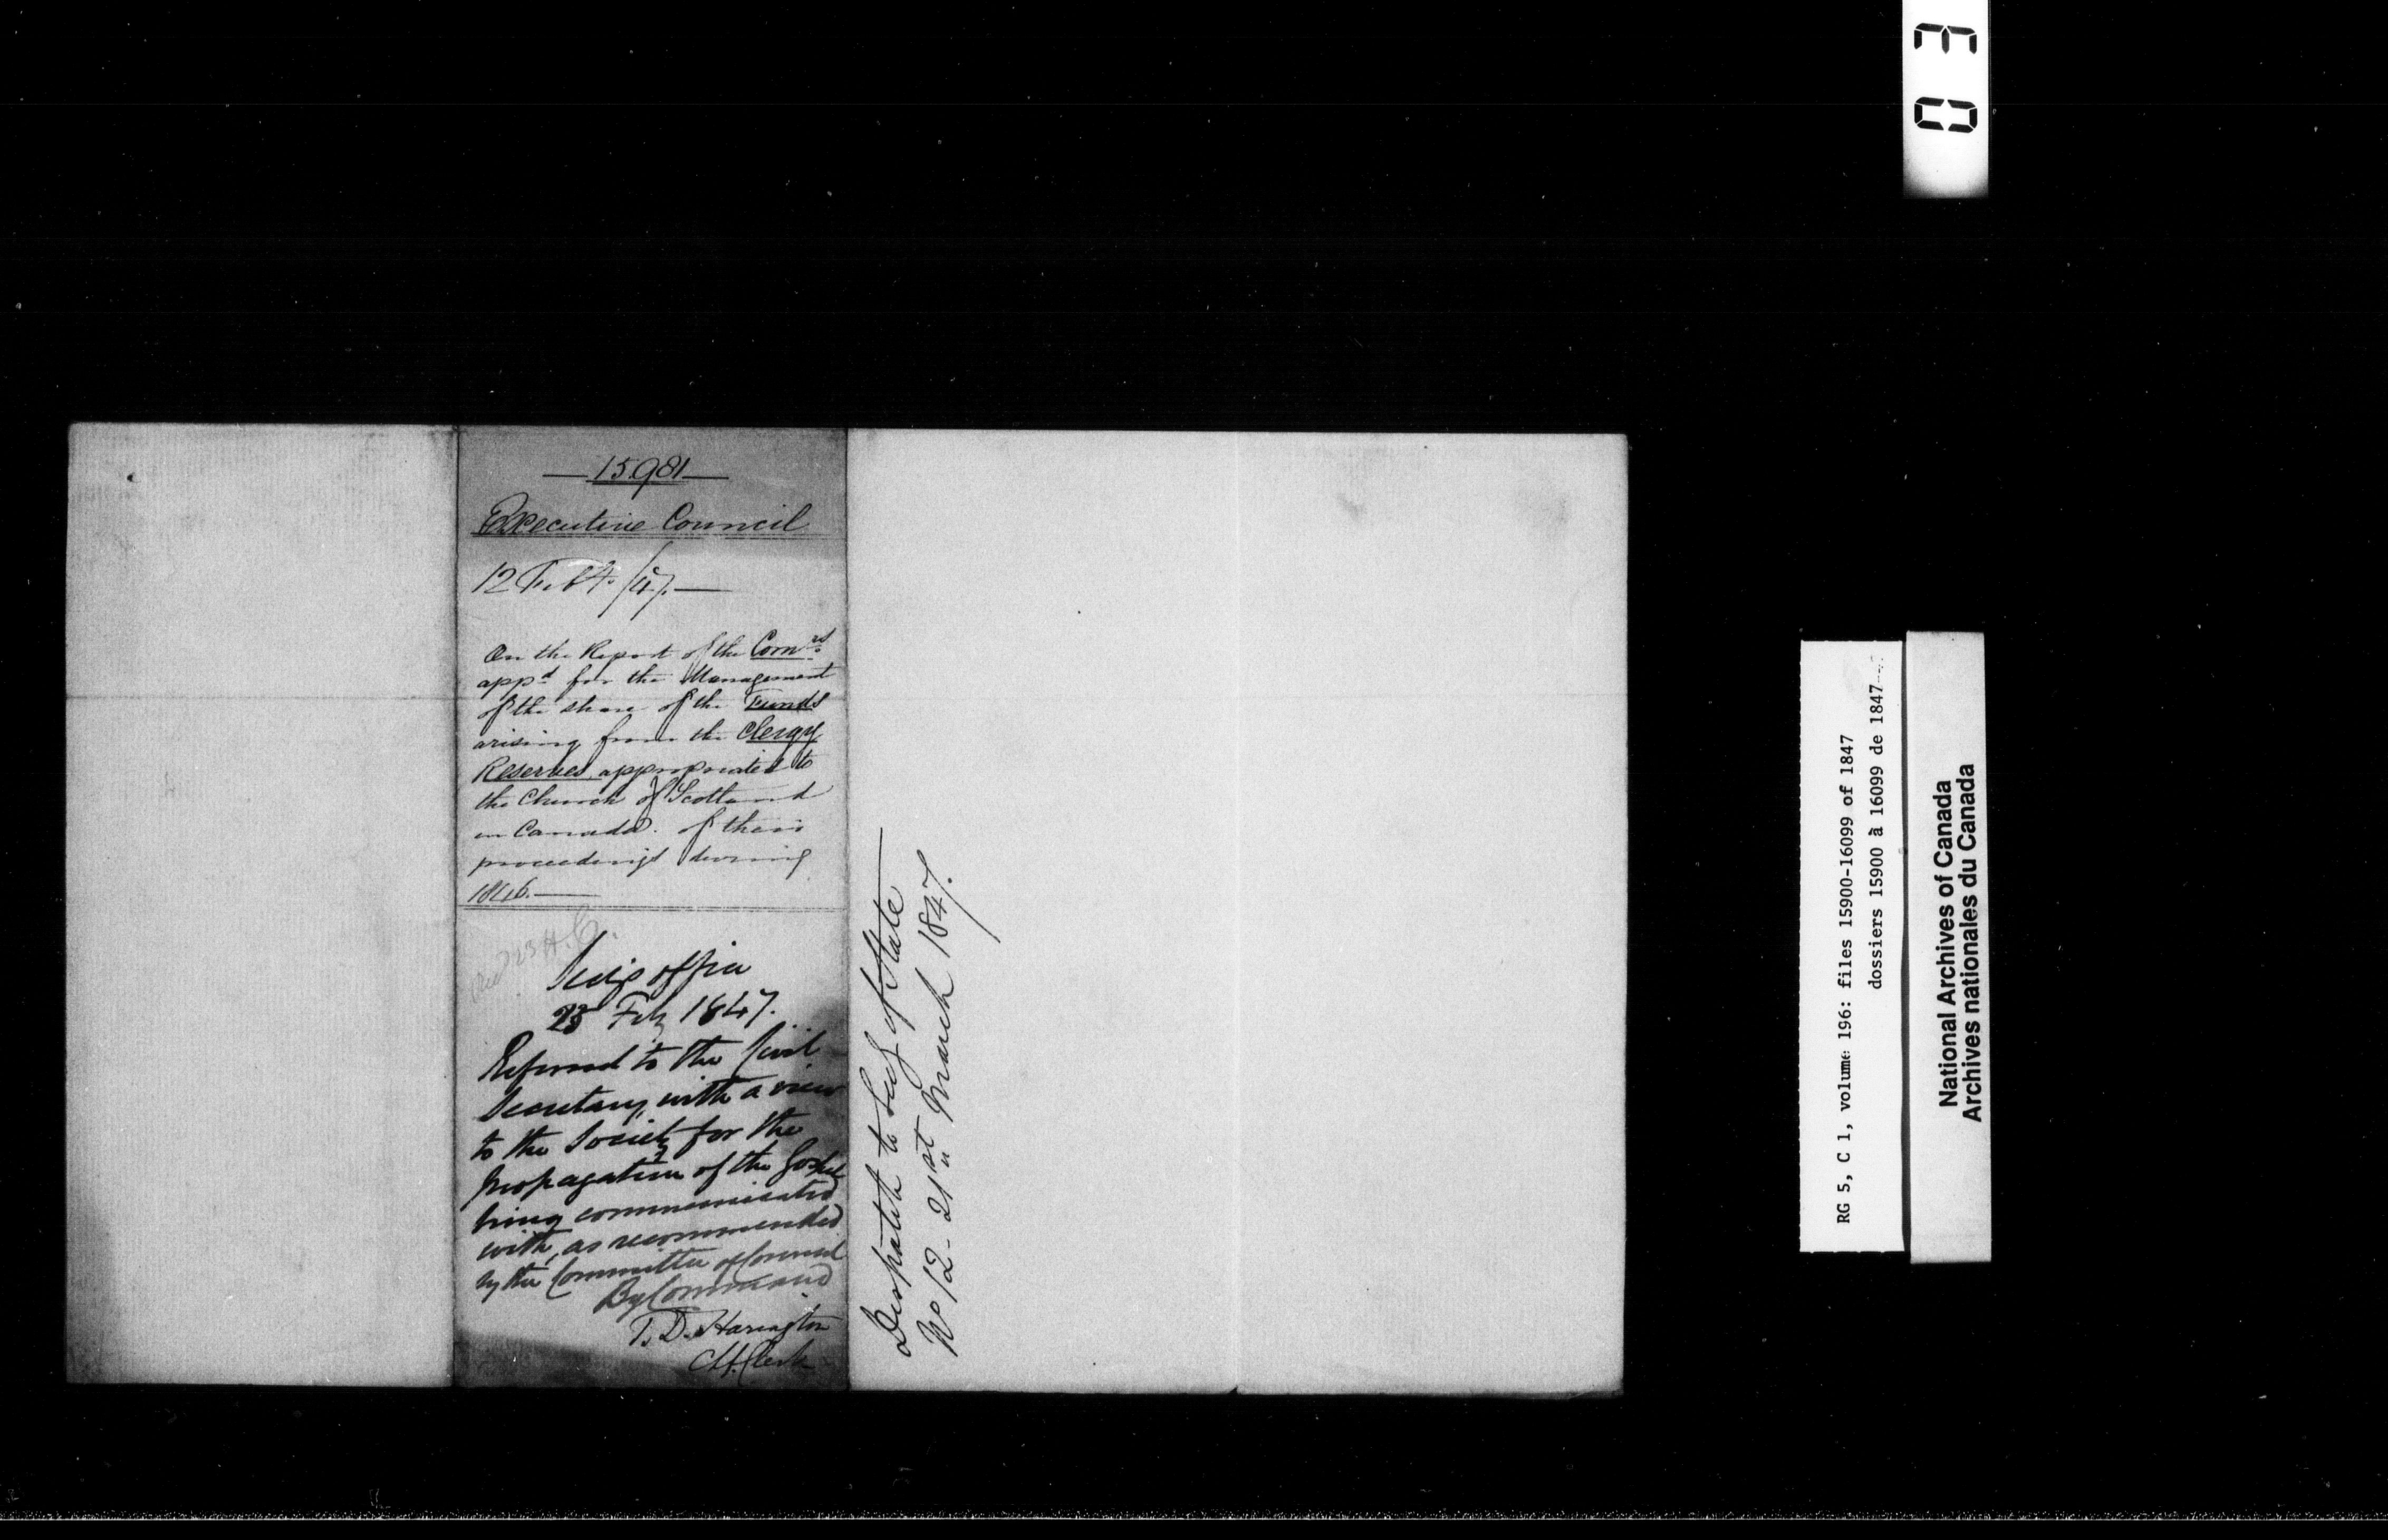 15981
Executive Council
12 Feby. /47.
On the Report of the Comrs.
appd for the Management
of the share of the Funds
arising from the Clergy
Reserves appropriated to
the Church of Scotland
in Canada. of their
proceedings during
1846.
Secy's office
23 Feby 1847.
Referred to the Civil
Secretary, with a view
to the Society for the
propagation of the Gospel
being communicated
with, as recommended
by the Committee of Council
By Command
T. D. Harington
Ch. Clerk
Despatch to Secy of State
No 12 - 21st March 1847.
03
RG 5, C 1, volume 196: files 15900-16099 of 1847
dossiers 15900 à 16099 de 1847
National Archives of Canada
Archives nationales du Canada